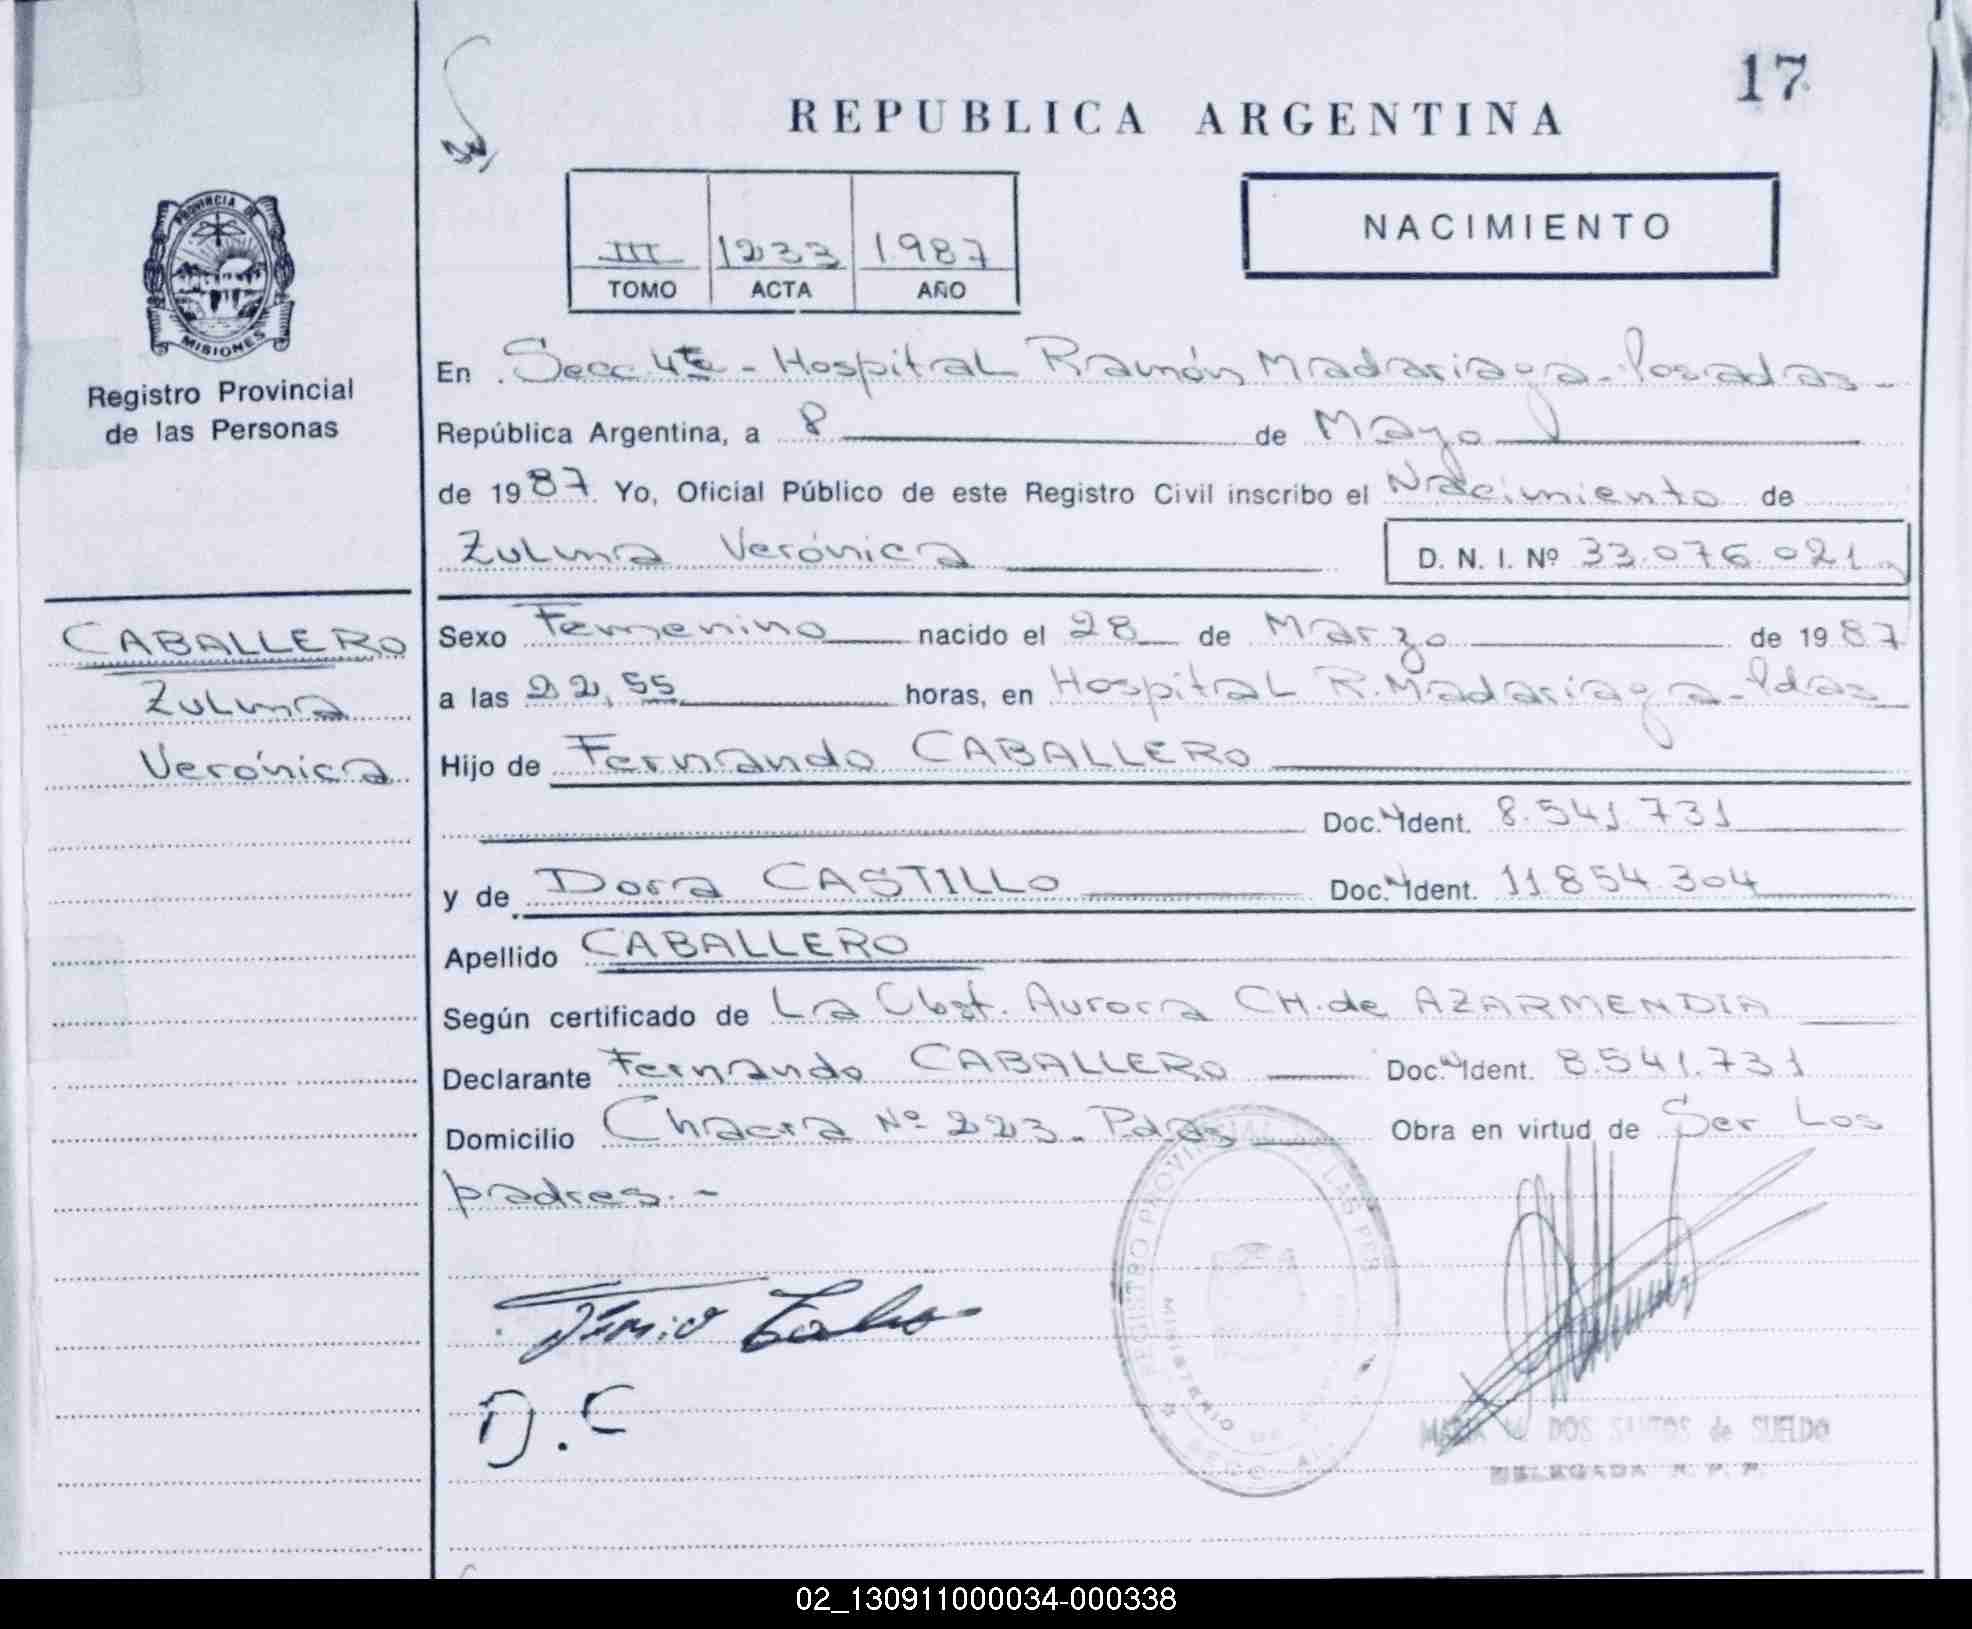 17
REPUBLICA ARGENTINA
NACIMIENTO
III 1233 1987
TOMO ACTA AÑO
PROVINCIA DE
MISIONES
Registro Provincial
de las Personas
En Secc 4ta - Hospital Ramón Madariaga - Posadas -
República Argentina, a 8 de Mayo
de 1987 Yo, Oficial Público de este Registro Civil inscribo el Nacimiento de
Zulma Verónica D. N. I. Nº 33.076.021
CABALLERO
Zulma
Verónica
Sexo Femenino nacido el 28 de Marzo de 1987
a las 22,55 horas, en Hospital R. Madariaga - Pdas
Hijo de Fernando CABALLERO
Doc. Ident. 8.541.731
y de Dora CASTILLO Doc. Ident. 11.854.304
Apellido CABALLERO
Según certificado de La Obst. Aurora CH. de AZARMENDIA
Declarante Fernando CABALLERO Doc. Ident. 8.541.731
Domicilio Chacra Nº 223 - Pdas Obra en virtud de Ser Los
padres. -
REGISTRO PROVINCIAL DE LAS PER
MINISTERIO DE
D. C
MARIA DOS SANTOS de SUELDO
DELEGADA R. P. P.
02_130911000034-000338